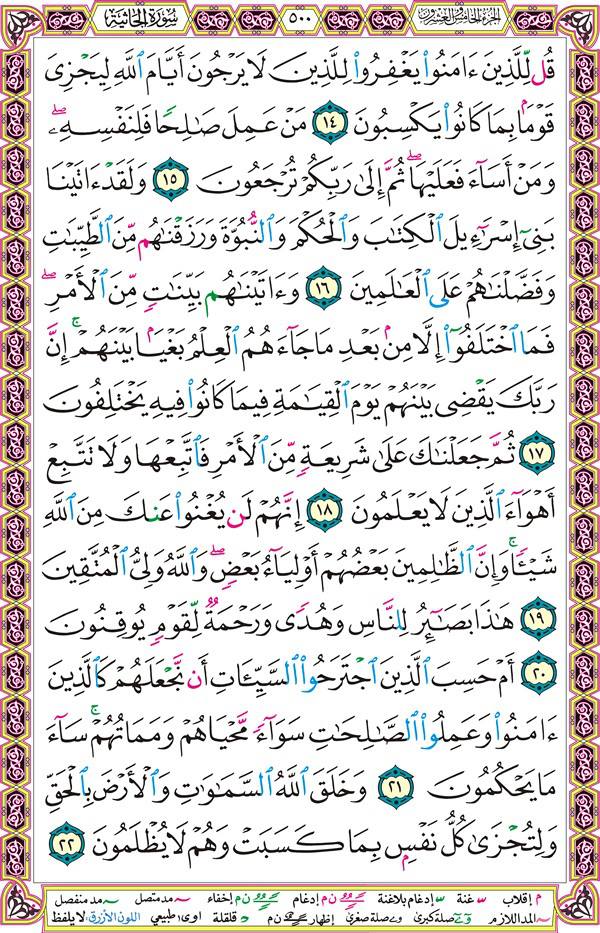 سُورَةُ الجَاثِيَة ٥٠٠ الجزء الخامس والعشرون
قُل لِّلَّذِينَ ءَامَنُواْ يَغۡفِرُواْ لِلَّذِينَ لَا يَرۡجُونَ أَيَّامَ ٱللَّهِ لِيَجۡزِيَ
قَوۡمَۢا بِمَا كَانُواْ يَكۡسِبُونَ ١٤ مَنۡ عَمِلَ صَٰلِحٗا فَلِنَفۡسِهِۦۖ
وَمَنۡ أَسَآءَ فَعَلَيۡهَاۖ ثُمَّ إِلَىٰ رَبِّكُمۡ تُرۡجَعُونَ ١٥ وَلَقَدۡ ءَاتَيۡنَا
بَنِيٓ إِسۡرَٰٓءِيلَ ٱلۡكِتَٰبَ وَٱلۡحُكۡمَ وَٱلنُّبُوَّةَ وَرَزَقۡنَٰهُم مِّنَ ٱلطَّيِّبَٰتِ
وَفَضَّلۡنَٰهُمۡ عَلَى ٱلۡعَٰلَمِينَ ١٦ وَءَاتَيۡنَٰهُم بَيِّنَٰتٖ مِّنَ ٱلۡأَمۡرِۖ
فَمَا ٱخۡتَلَفُوٓاْ إِلَّا مِنۢ بَعۡدِ مَا جَآءَهُمُ ٱلۡعِلۡمُ بَغۡيَۢا بَيۡنَهُمۡۚ إِنَّ
رَبَّكَ يَقۡضِي بَيۡنَهُمۡ يَوۡمَ ٱلۡقِيَٰمَةِ فِيمَا كَانُواْ فِيهِ يَخۡتَلِفُونَ
١٧ ثُمَّ جَعَلۡنَٰكَ عَلَىٰ شَرِيعَةٖ مِّنَ ٱلۡأَمۡرِ فَٱتَّبِعۡهَا وَلَا تَتَّبِعۡ
أَهۡوَآءَ ٱلَّذِينَ لَا يَعۡلَمُونَ ١٨ إِنَّهُمۡ لَن يُغۡنُواْ عَنكَ مِنَ ٱللَّهِ
شَيۡـٔٗاۚ وَإِنَّ ٱلظَّٰلِمِينَ بَعۡضُهُمۡ أَوۡلِيَآءُ بَعۡضٖۖ وَٱللَّهُ وَلِيُّ ٱلۡمُتَّقِينَ
١٩ هَٰذَا بَصَٰٓئِرُ لِلنَّاسِ وَهُدٗى وَرَحۡمَةٞ لِّقَوۡمٖ يُوقِنُونَ
٢٠ أَمۡ حَسِبَ ٱلَّذِينَ ٱجۡتَرَحُواْ ٱلسَّيِّـَٔاتِ أَن نَّجۡعَلَهُمۡ كَٱلَّذِينَ
ءَامَنُواْ وَعَمِلُواْ ٱلصَّٰلِحَٰتِ سَوَآءٗ مَّحۡيَاهُمۡ وَمَمَاتُهُمۡۚ سَآءَ
مَا يَحۡكُمُونَ ٢١ وَخَلَقَ ٱللَّهُ ٱلسَّمَٰوَٰتِ وَٱلۡأَرۡضَ بِٱلۡحَقِّ
وَلِتُجۡزَىٰ كُلُّ نَفۡسِۭ بِمَا كَسَبَتۡ وَهُمۡ لَا يُظۡلَمُونَ ٢٢
م إقلاب غنة إدغام بلاغنة ن م إدغام ن م إخفاء مد متصل مد منفصل
المد اللازم صلة كبرى صلة صغرى إظهار ن م قلقلة اوى طبيعي اللون الأزرق: لا يلفظ